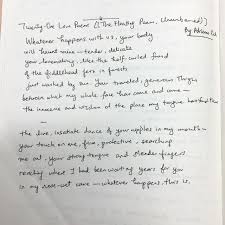 Twenty-One Love Poems [(The Floating Poem, Unnumbered)]
By Adrienne Rich
Whatever happens with us, your body
will haunt mine - tender, delicate
your lovemaking, like the half-curled frond
of the fiddlehead fern in forests
just washed by sun. Your traveled, generous thighs
between which my whole face has come and come -
the innocence and wisdom of the place my tongue has found there
-
the live, insatiate dance of your nipples in my mouth -
your touch on me, firm, protective, searching
me out, your strong tongue and slender fingers
reaching where I had been waiting years for you
in my rose-wet cave - whatever happens, this is.